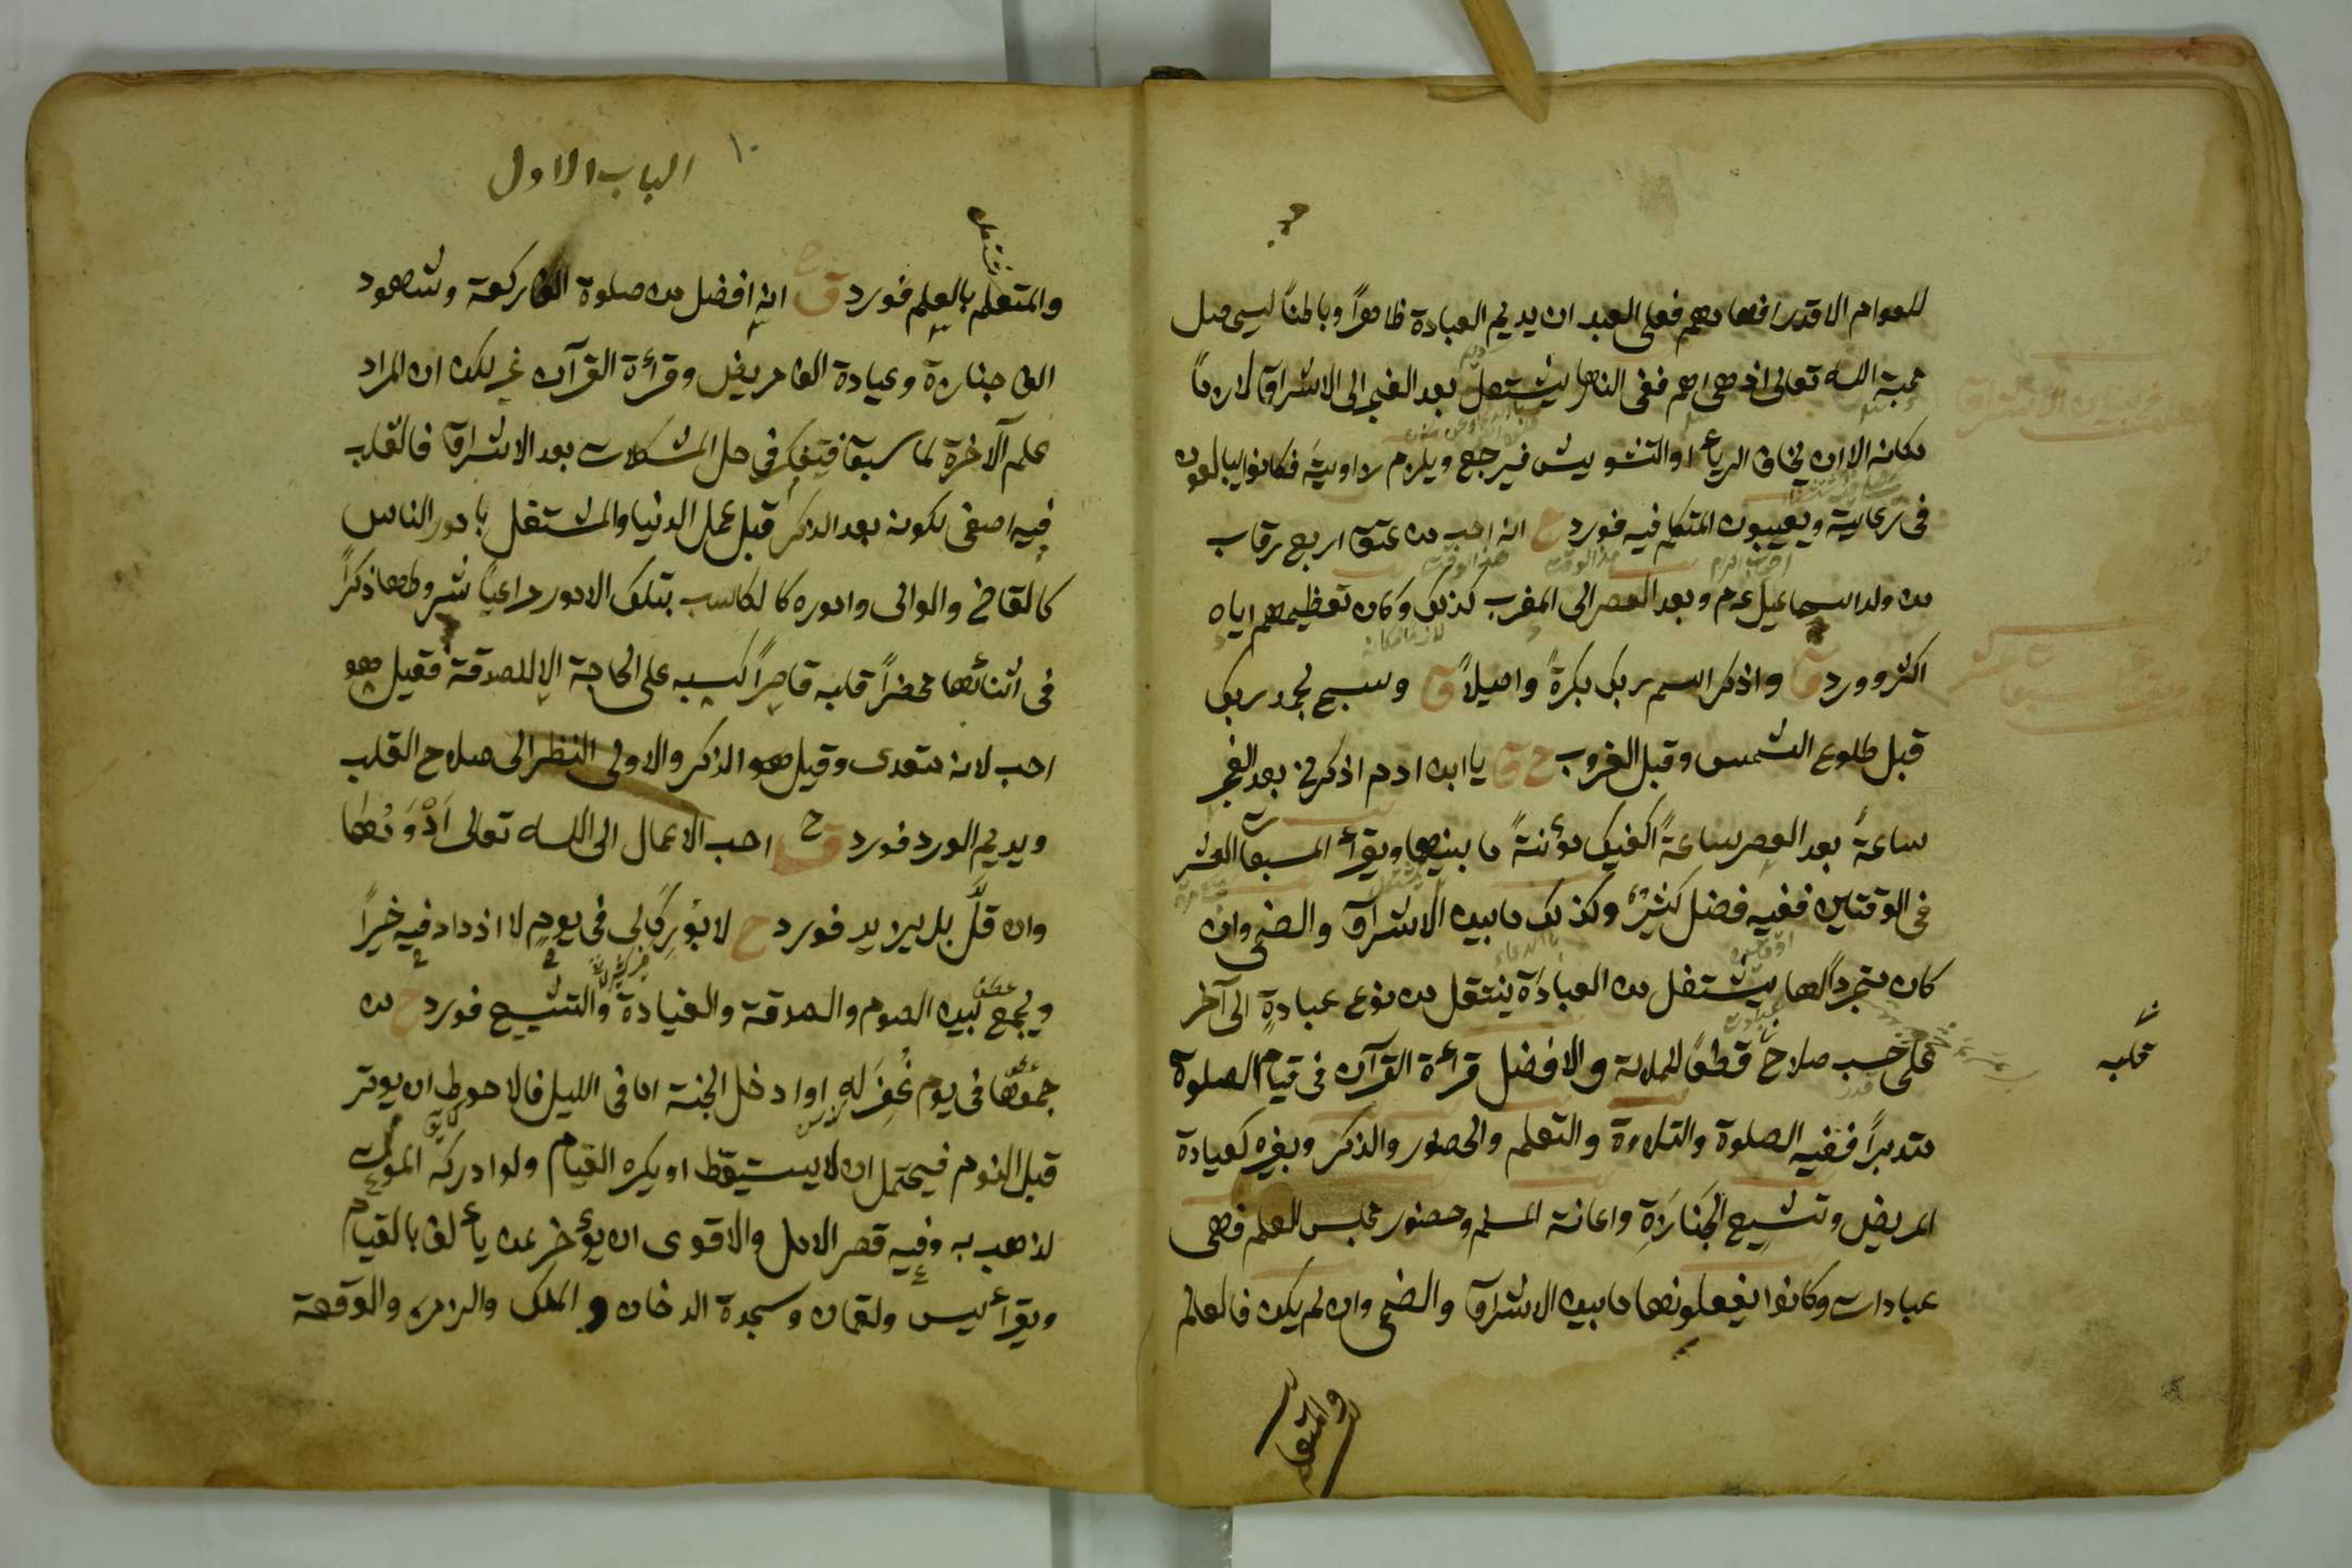 للعوام الا قدر افهامهم فعلى العبد ان يديم العبادة ظاهراً وباطناً ليحصل
محبة الله تعالى اذ هى اهم ففى النهار يشتغل بعد الفجر الى الاشراق لازماً
مكانه الا ان يخاف الرياء او التشويش فيرجع ويلزم زاويته فكانوا يبالغون
فى رعايته ويعيبون المتكلم فيه فورد ح انه احب من عتق اربع رقاب
من ولد اسماعيل عم وبعد العصر الى المغرب كذلك وكان تعظيمهم اياه
اكثر وورد ق واذكر اسم ربك بكرةً واصيلاً ق وسبح بحمد ربك
قبل طلوع الشمس وقبل الغروب ح ق يا ابن ادم اذكرنى بعد الفجر
ساعةً بعد العصر ساعةً اكفيك مؤنتةً ما بينهما ويقرأ المسبعات العشر
فى الوقتين ففيه فضل كثير وكذلك ما بين الاشراق والضحى وان
كان متجرداً لها يشتغل من العبادة ينتقل من نوع عبادةٍ الى آخر
على حسب صلاح قطعاً للملالة والافضل قرأة القرآن فى قيام الصلوة
قلبه
متدبراً ففيه الصلوة والتلاوة والتعلم والحضور والذكر وبغيره كعيادة
المريض وتشييع الجنازة واعانة المسلم وحضور مجلس العلم فهى
عبادات وكانوا يفعلونها ما بين الاشراق والضحى وان لم يكن فالعالم
والمتعلم
١٠
الباب الاول
والمتعلم بالعلم فورد ق انه افضل من صلوة الف ركعة وشهود
الف جنازة وعيادة الف مريض وقرأة القرآن غير لكن ان المراد
علم الآخرة لما سبق فيتفكر فى حل المشكلات بعد الاشراق فالقلب
فيه اصفى لكونه بعد الذكر قبل عمل الدنيا والمشتغل بامور الناس
كالقاضى والوالى واموره كالكاسب بتلك الامور راعياً شروطها ذكراً
فى اثنائها محضراً قلبه قاصراً كسبه على الحاجة الا للصدقة فقيل هو
احب لانه متعدى وقيل هو الذكر والاولى النظر الى صلاح القلب
ويديم الورد فورد ق ح احب الاعمال الى الله تعالى أدْوَمُها
وان قلَّ بل يزيد فورد ح لا بُورِكَ لى فى يومٍ لا ازداد فيه خيراً
ويجمع بين الصوم والصدقة والعيادة والتشييع فورد ح من
جمعها فى يوم غُفِرَ له او ادخل الجنة اما فى الليل فالاحوط ان يوتر
قبل النوم فيحتمل ان لا يستيقظ او يكره القيام ولو ادركه الموت
لذهب به وفيه قصر الامل والاقوى ان يؤخر عن يألف بالقيام
ويقرأ يس ولقمان وسجدة الدخان و الملك والزمر والوقعة